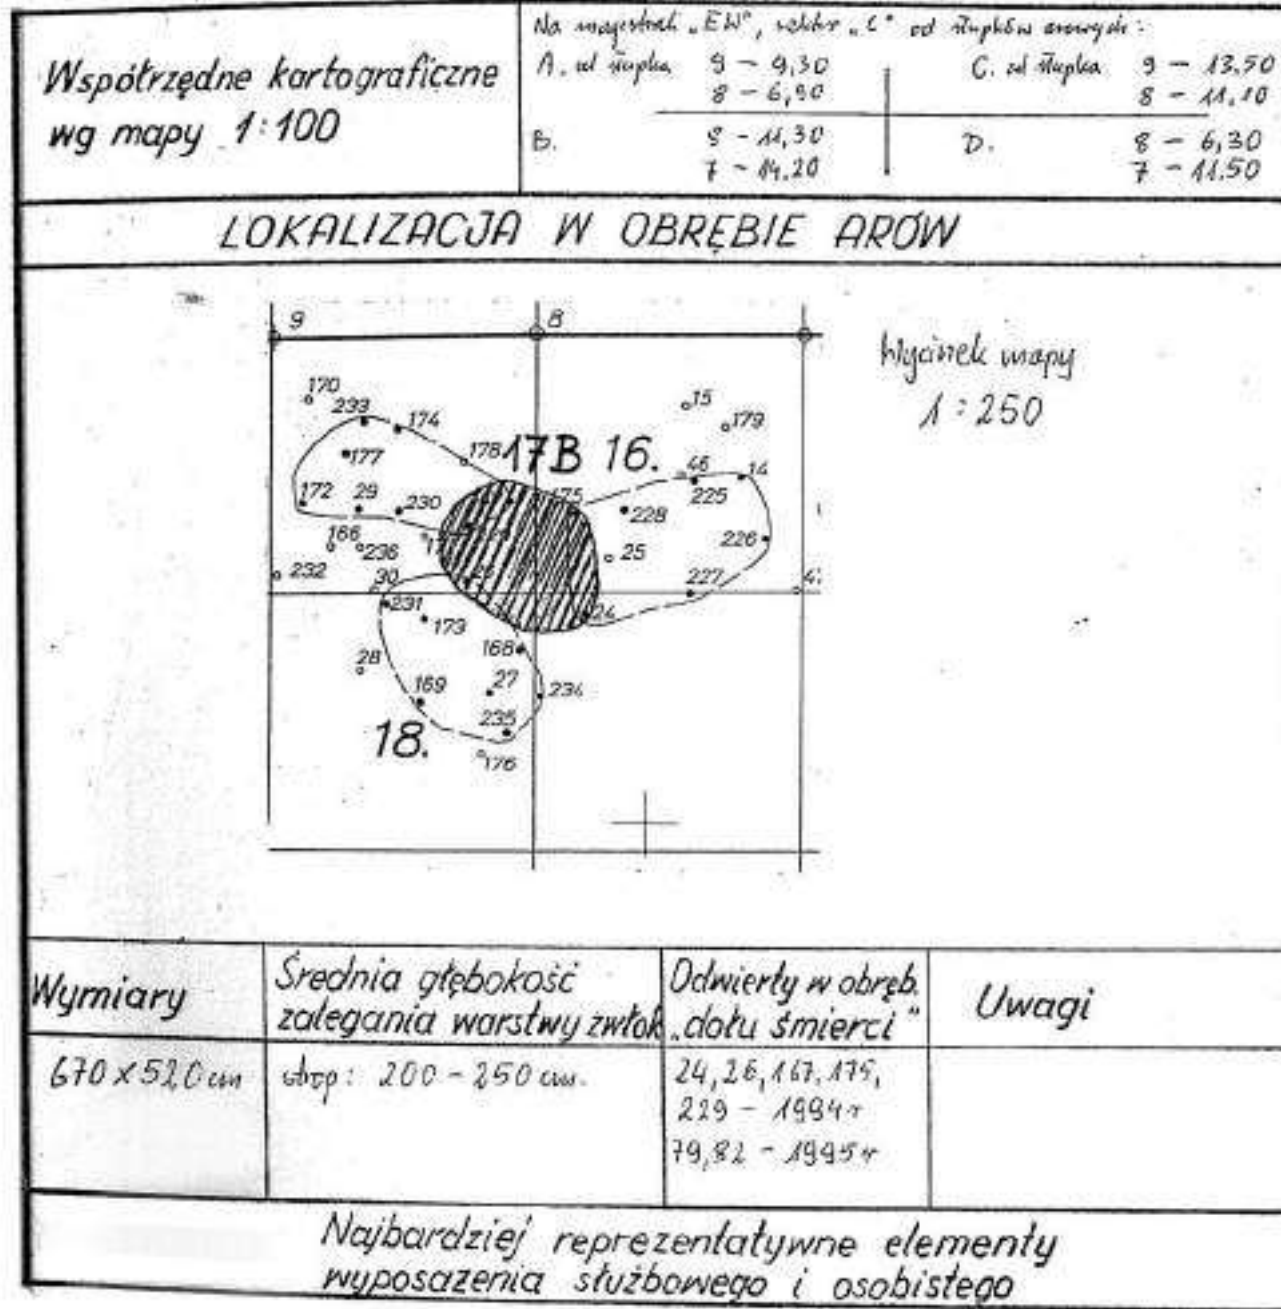 Współrzędne kartograficzne
wg mapy 1:100
Na magistrali „EW”, sektor „C” od słupków arowych:
A. od słupka 9 - 9,30
8 - 6,90
C. od słupka 9 - 13.50
8 - 11.10
B. 8 - 11,30
7 - 14.20
D. 8 - 6,30
7 - 11.50
LOKALIZACJA W OBRĘBIE ARÓW
9 8
Wycinek mapy
1:250
170
233
174
15
179
177
178
17B 16.
46
14
172
29
230
175
228
225
166
236
25
226
232
30
227
231
24
173
168
28
169
27
234
18.
235
176
Wymiary
Średnia głębokość
zalegania warstwy zwłok
Odwierty w obręb.
„dołu śmierci”
Uwagi
670 x 520 cm
strop: 200 - 250 cm.
24, 26, 167, 175,
229 - 1994 r
79, 82 - 1995 r
Najbardziej reprezentatywne elementy
wyposażenia służbowego i osobistego